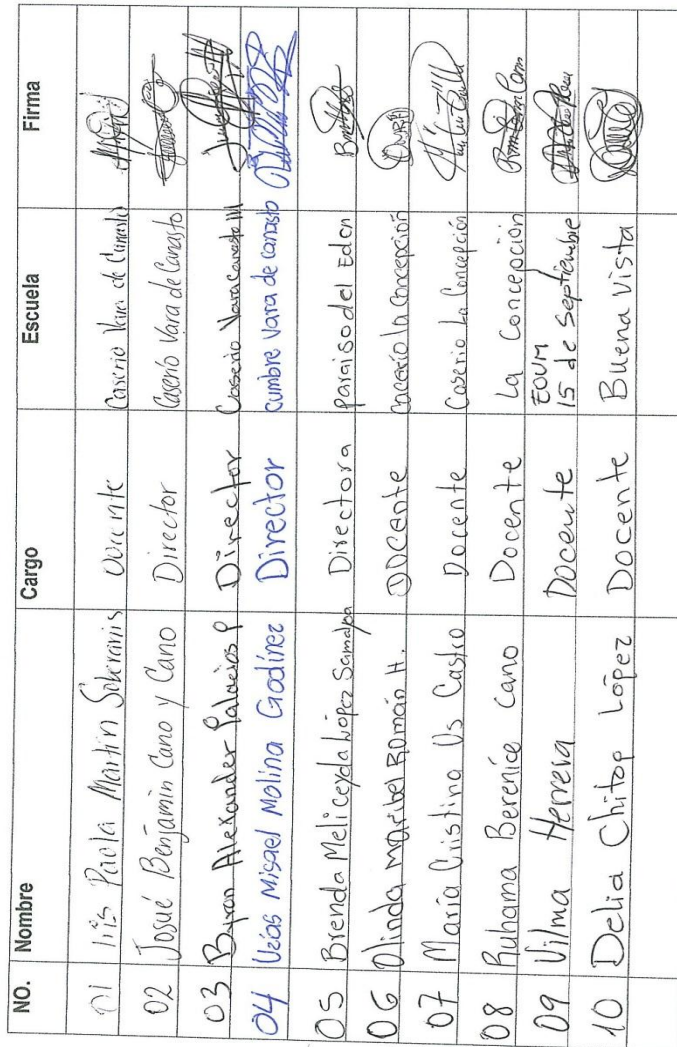 NO. Nombre Cargo Escuela Firma
01 Paola Martin Docente Caserio Vara de Canasto
02 Josué Benjamin Cano y Cano Director Caserío Vara de Canasto
03 Byron Alexander Palacios P Director Caserio Vara Canasto III
04 Uzías Misael Molina Godínez Director cumbre Vara de canasto
05 Brenda Meliceyda López Samalpa Directora paraiso del Eden
06 Olinda Maribel Román H. Docente Caserío la Concepción
07 María Cristina Us Castro Docente Caserio La Concepción
08 Ruhama Berenice Cano Docente La Concepción
09 Vilma Herrera Docente EOUM
15 de Septiembre
10 Delia Chitop López Docente Buena Vista